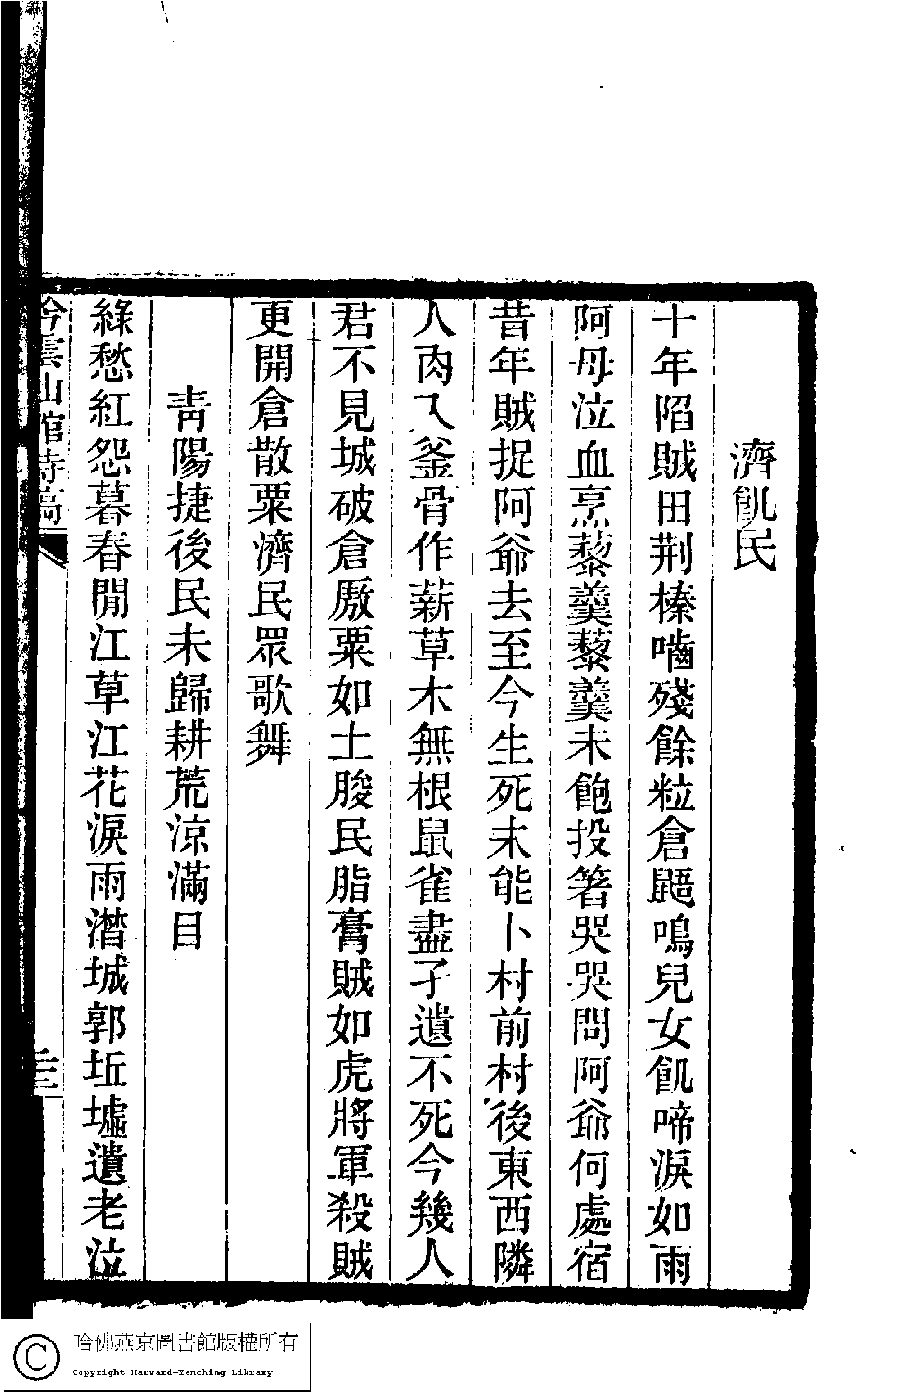 濟飢民
十年陷賊田荆榛嚙殘餘粒倉鼯鳴兒女飢啼淚如雨
阿母泣血烹藜羹藜羹未飽投箸哭哭問阿爺何處宿
昔年賊捉阿爺去至今生死未能卜村前村後東西隣
人肉入釜骨作薪草木無根鼠雀盡孑遺不死今幾人
君不見城破倉厫粟如土朘民脂膏賊如虎將軍殺賊
更開倉散粟濟民眾歌舞
青陽捷後民未歸耕荒涼滿目
綠愁紅怨暮春閒江草江花淚雨潸城郭坵墟遺老泣
吟雲山館詩稿
哈佛燕京圖書館版權所有
Copyright Harvard-Yenching Library